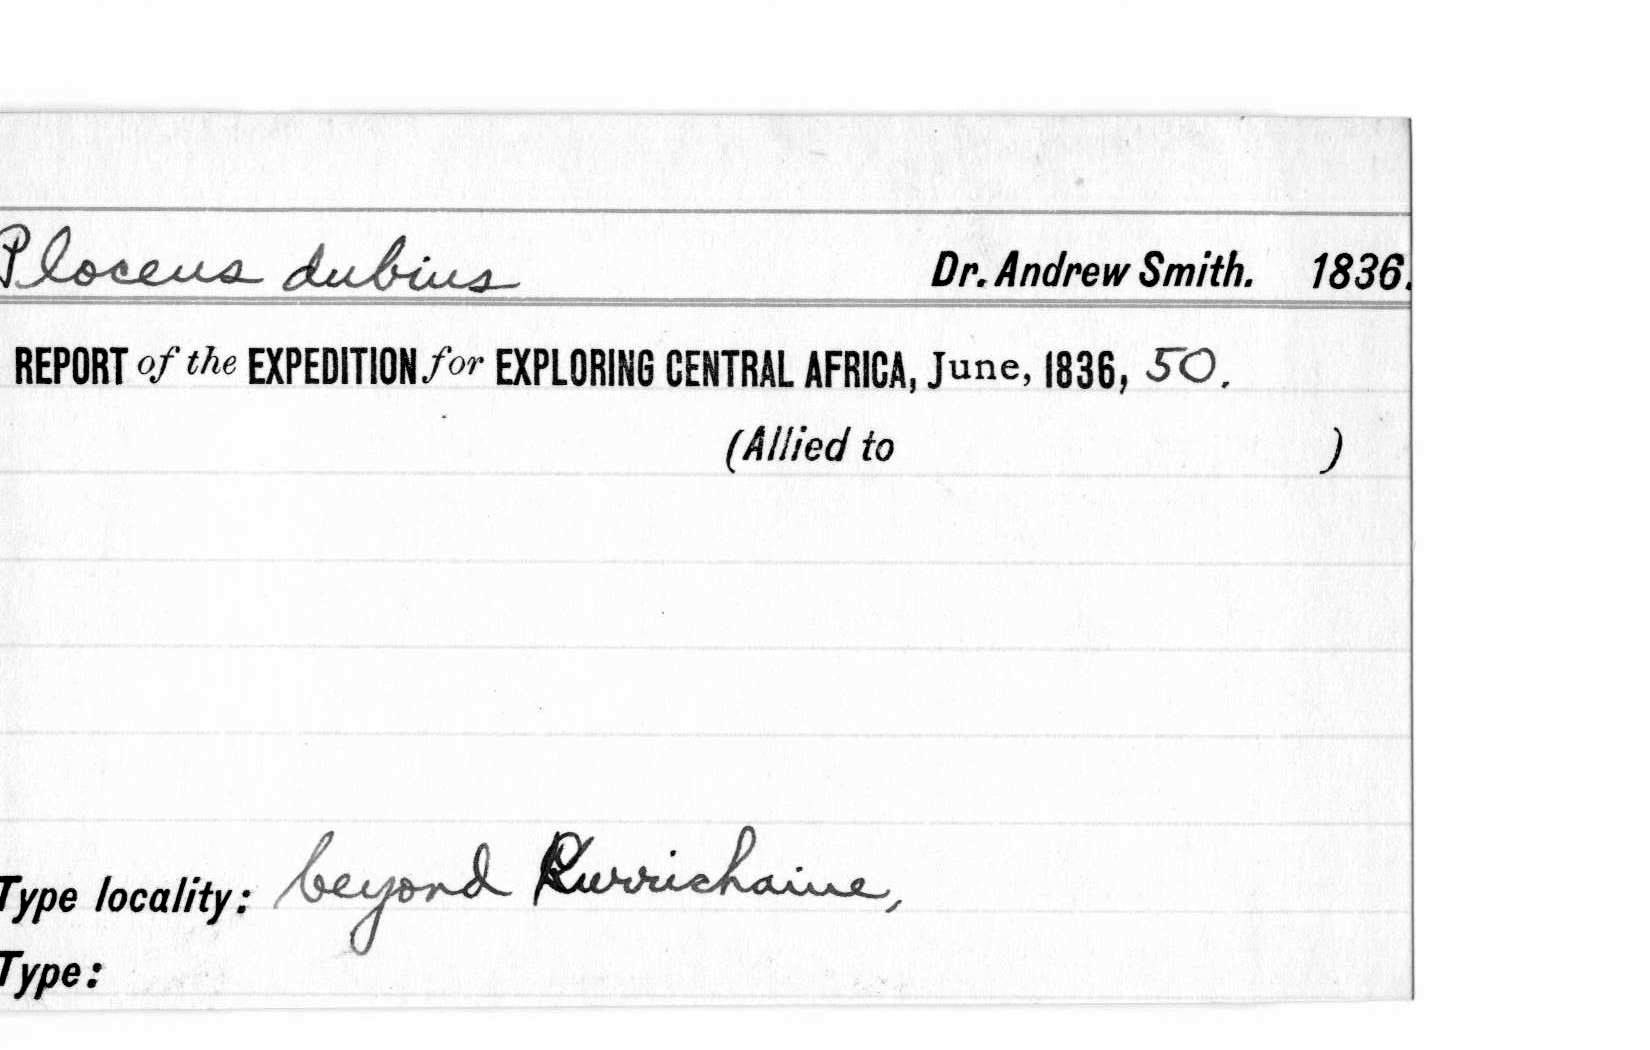 Ploceus dubius Dr. Andrew Smith. 1836.
REPORT of the EXPEDITION for EXPLORING CENTRAL AFRICA, June, 1836, 50.
(Allied to )
Type locality: beyond Kurrichaine,
Type: